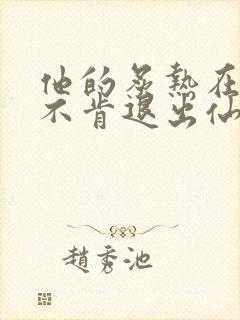 他的炙热在
不肯退出仙
趙秀池